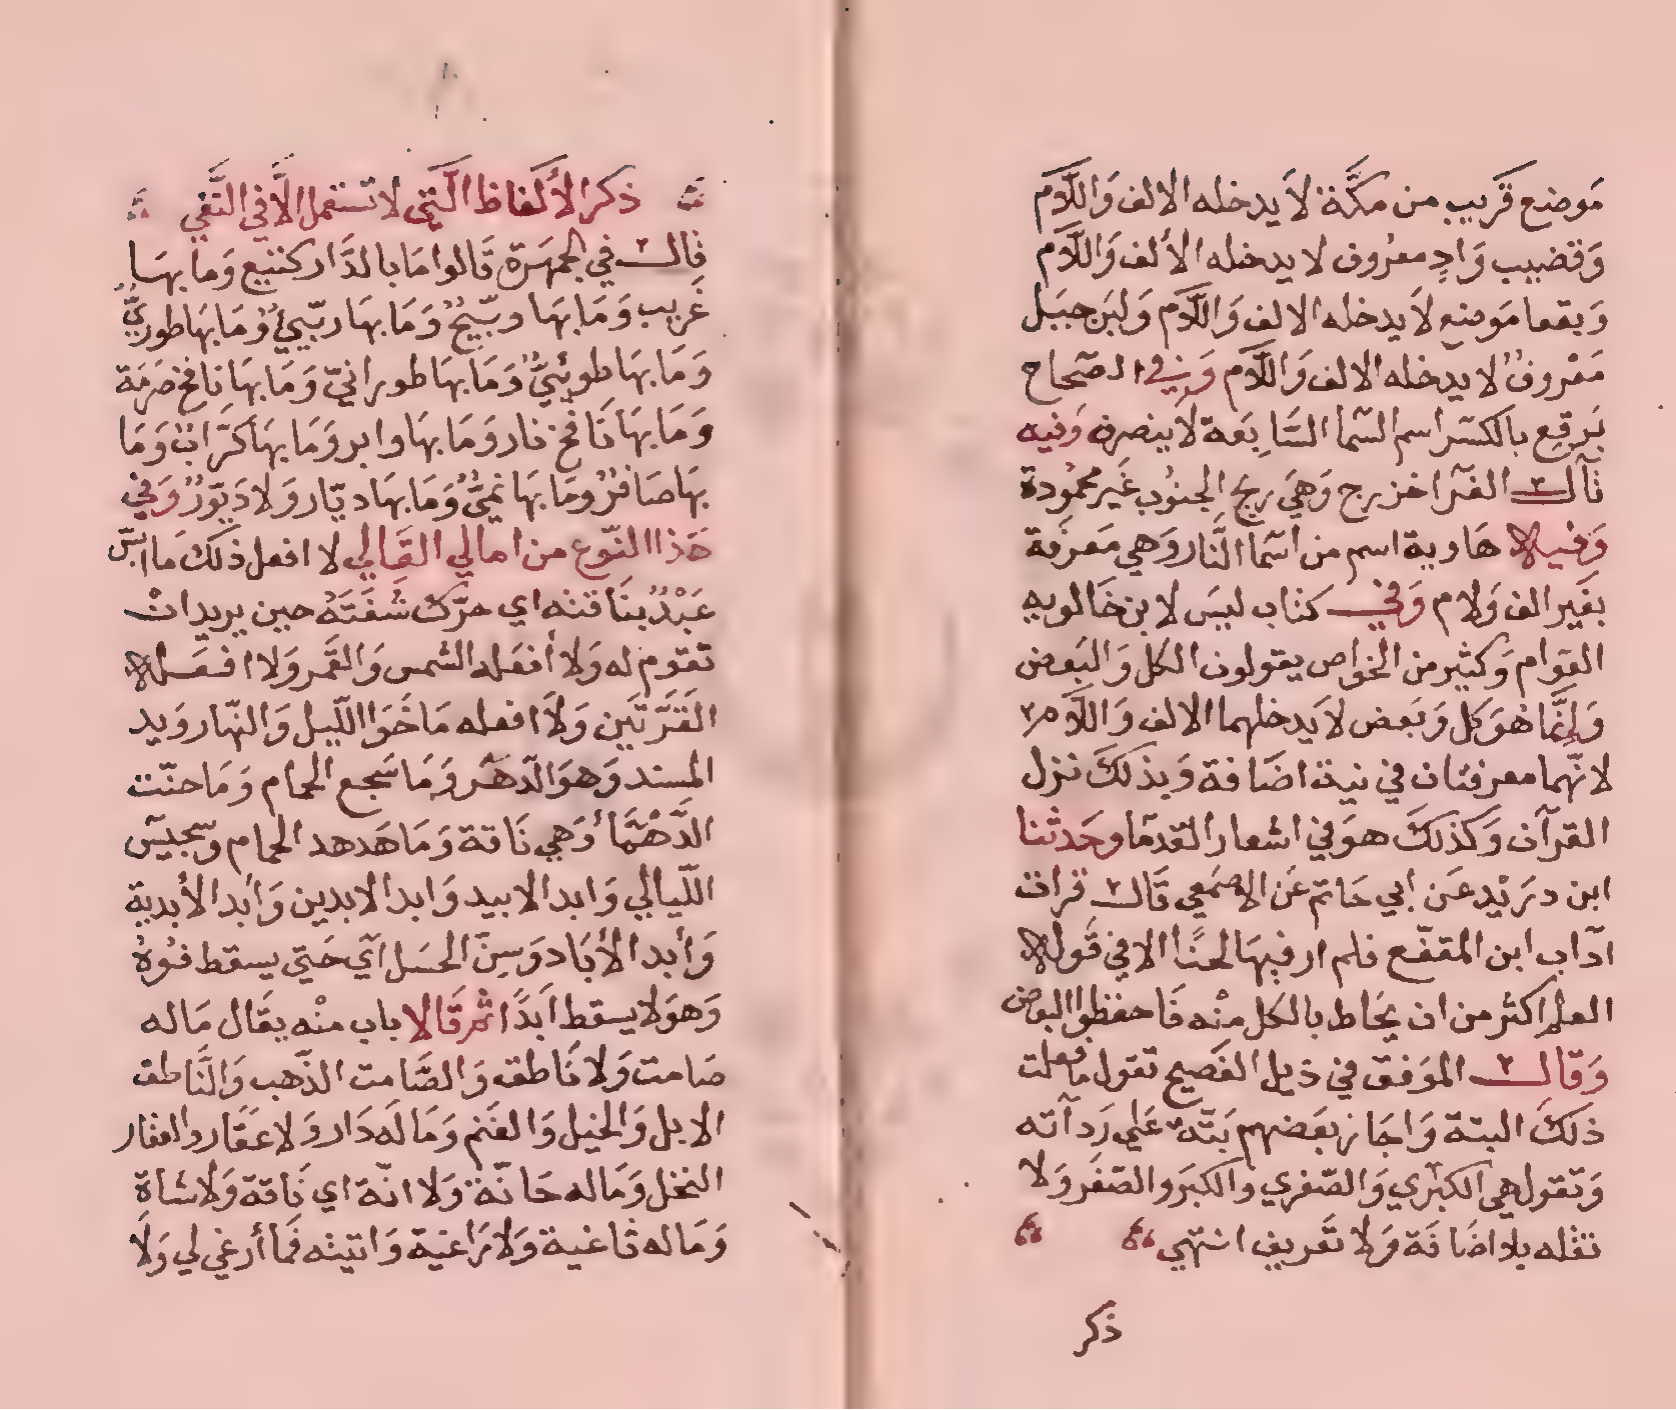 مَوضع قَريب من مكَّة لاَ يدخله الالف وَاللَّام
وَقضيب وَادٍ معرُوف لا يدخله الألف وَاللَّام
وَبقعا مَوضع لاَ يدخله الالف وَاللَّام وَلبَن جبَل
مَعْروفٌ لا يدخله الالف وَاللَّام وَفي الصّحاح
بَرقع بالكسَر اسم السّما السَّابعَة لاَ ينصرف وَفيه
قالَ الفرّا خزرج وَهيَ ريح الجنوُب غَير محمُودة
وَفيه هَاوية اسم من اسّما النَّار وَهي مَعرفَة
بغَير الف وَلام وَفي كتاب ليسَ لابن خَالويه
العَوام وَكثير من الخوَاص يقولون الكل وَالبَعض
وَإنَّما هُوَ كل وَبَعض لاَ يَدخلهما الالف وَاللَّام
لانّهما معرفتان في نية اضَافة وَبذلكَ نزل
القرآن وَكذلكَ هوَ في اشعار القدمَا وحَدثنا
ابن درَيْد عَن أبي حَاتم عَن الاصمَعي قَال قرات
آدَاب ابن المقفّع فلم ار فيهَا لحنًا الا في قَوله
العلم اكثر من ان يحَاط بالكل منْه فَاحفظوا البعض
وَقال الموَفق في ذيل الفَصيح تقول ما فعلت
ذلكَ البتة وَاجَاز بعَضهم بَتّة عَلي رَدآته
وَتقول هي الكبْري وَالصّغري والكبَر والصّغَر وَلا
تقله بلا اضَافَة وَلا تَعريف انتهي
ذكر
ذكر الأَلفاظ الَّتي لا تستعمل الَّا في النَّفي
قال في الجمهَرة قَالوا مَا بالدَّار كتيع وَما بهَا
غَريب وَمَا بهَا دبّيجٌ وَمَا بهَا ربّيٌ وَمَا بهَا طوريٌّ
وَمَا بهَا طوئِيٌّ وَمَا بهَا طورانيّ وَمَا بهَا نافخ ضرمَة
وَمَا بهَا نَافخ نار وَمَا بهَا وابر وَمَا بهَا كرّابٌ وَمَا
بهَا صَافرٌ ومَا بهَا نمّيٌّ وَمَا بهَا ديّار وَلا دَيّورٌ وَفي
هَذا النّوع من امالي القَالي لا افعل ذلكَ مَا ابسّ
عَبْدٌ بنَاقته اي حرّك شَفَتَهُ حين يريد ان
تقوم له وَلا أفعَله الشمس وَالقَمر وَلا افعَله
القَرَّتَين وَلاَ افعله مَا خَوَا اللّيل وَالنّهار وَيد
المسند وَهوَ الدّهَر وَمَا سَجع الحمام وَمَا حنّت
الدَّهْمَا وَهي نَاقة وَمَا هَدهد الحمام وسجيسَ
اللّيالي وَابد الابيد وَابد الابدين وَابد الأبدية
وَأبد الأبَاد وَسِنّ الحسَل اَي حَتي يسقط فوُهُ
وَهوَ لا يسقط اَبدًا ثمّ قَال باب منْه يقَال مَا له
صَامت وَلا نَاطق وَالصَّامت الذّهب وَالنَّاطق
الابل وَالخيل وَالغَنم وَمَا لَه دَار وَلا عقَار والعقار
النخل وَمَا له حَانّة وَلا انّة اي نَاقة وَلا شاة
وَمَا له ثاغيَة وَلا رَاغيَة وَاتيته فَما أرغي لي وَلَا